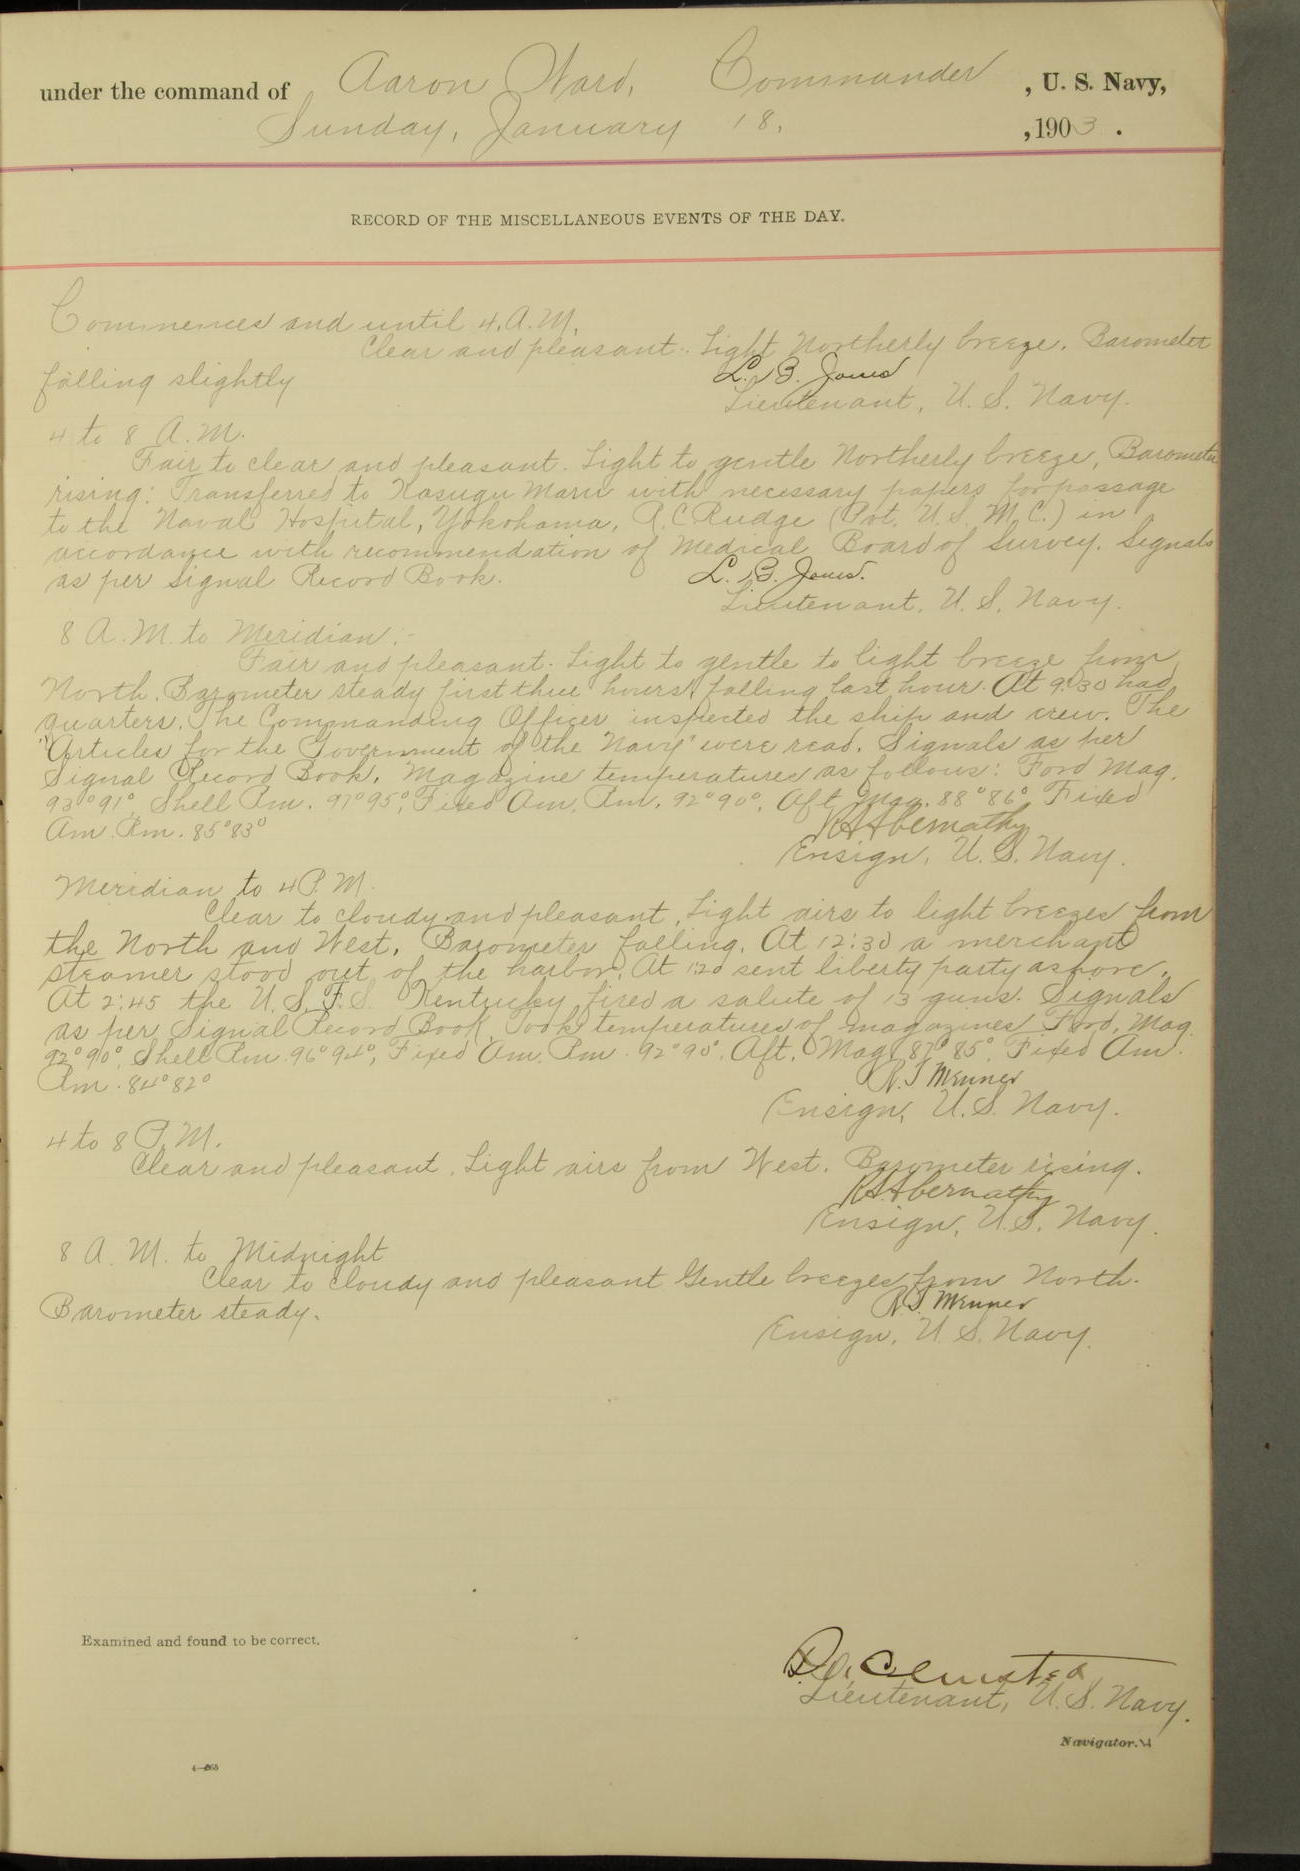 under the command of Aaron Ward, Commander , U. S. Navy,
Sunday, January 18, , 1903 .
RECORD OF THE MISCELLANEOUS EVENTS OF THE DAY.
Commences and until 4. A.M.
Clear and pleasant. Light Northerly breeze. Barometer
falling slightly
L. B. Jones
Lieutenant, U. S. Navy.
4 to 8 A.M.
Fair to clear and pleasant. Light to gentle Northerly breeze, Barometer
rising: Transferred to Kasugu Maru with necessary papers for passage
to the Naval Hospital, Yokohama, R. C. Rudge (Pvt. U.S. M.C.) in
accordance with recommendation of Medical Board of Survey. Signals
as per Signal Record Book.
L. B. Jones.
Lieutenant, U. S. Navy.
8 A.M. to Meridian.-
Fair and pleasant. Light to gentle to light breeze from
North. Barometer steady first three hours, falling last hour. At 9:30 had
quarters. The Commanding Officer inspected the ship and crew. The
"Articles for the Government of the Navy" were read. Signals as per
Signal Record Book. Magazine temperatures as follows: Ford Mag.
93° 91°, Shell Rm. 97° 95°, Fixed Am. Rm. 92° 90°, Aft Mag. 88° 86° Fixed
Am. Rm. 85° 83°
Abernathy
Ensign, U. S. Navy.
Meridian to 4 P.M.
Clear to cloudy and pleasant. Light airs to light breezes from
the North and West. Barometer falling. At 12:30 a merchant
steamer stood out of the harbor. At 1:20 sent liberty party ashore.
At 2:45 the U.S.F.S. Kentucky fired a salute of 13 guns. Signals
as per Signal Record Book. Took temperatures of magazines Ford. Mag.
92° 90°, Shell Rm. 96° 94°, Fixed Am. Rm. 92° 90°, Aft. Mag. 87° 85°, Fixed Am.
Rm. 84° 82°
R. T. Menner
Ensign, U. S. Navy.
4 to 8 P.M.
Clear and pleasant. Light airs from West. Barometer rising.
Abernathy
Ensign, U. S. Navy.
8 A. M. to Midnight
Clear to cloudy and pleasant Gentle breezes from North.
Barometer steady.
R. T. Menner
Ensign, U. S. Navy.
Examined and found to be correct.
Olmsted
Lieutenant, U. S. Navy.
Navigator.